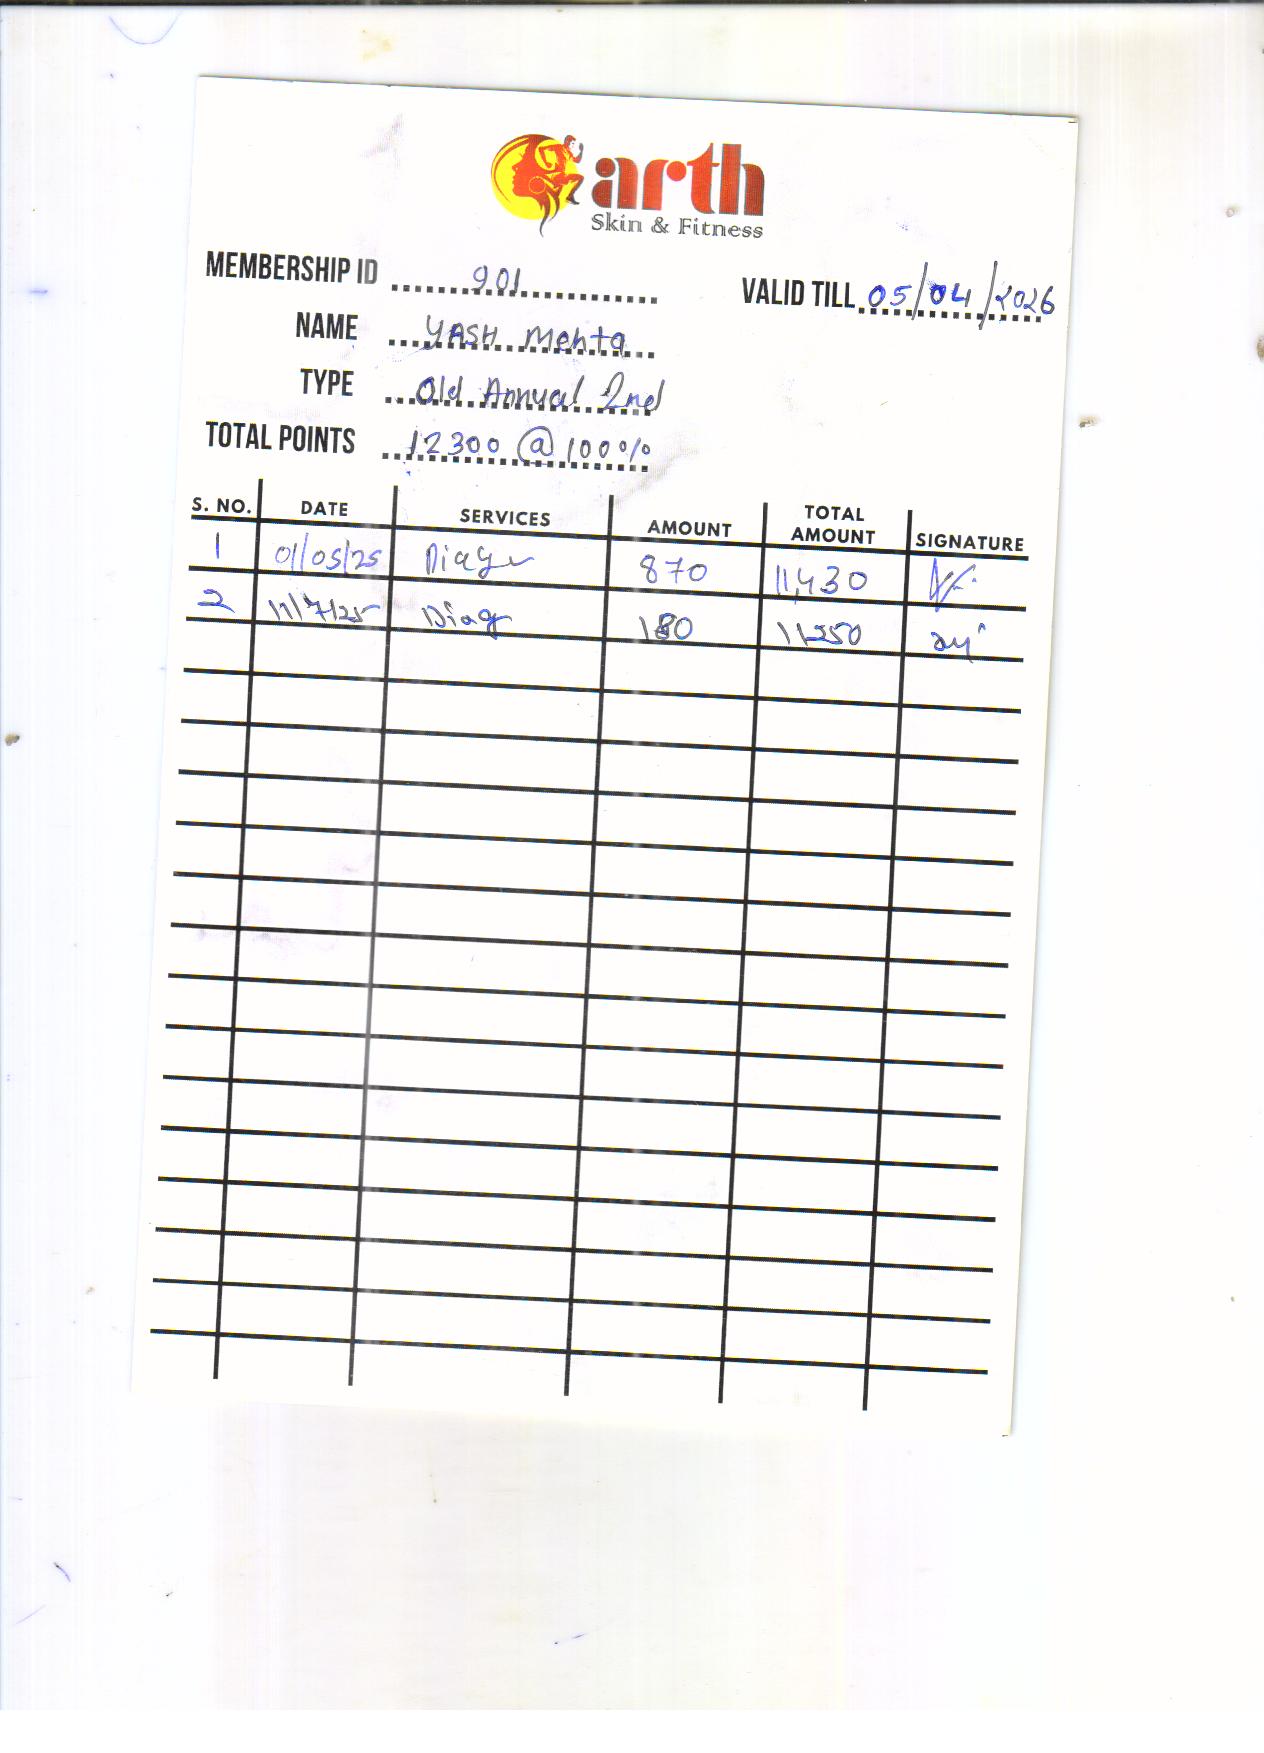 arth
Skin & Fitness
MEMBERSHIP ID 901
VALID TILL 05/04/2026
NAME YASH Mehta
TYPE Old Annual 2nd
TOTAL POINTS 12300 @ 100%
S. NO. DATE SERVICES AMOUNT TOTAL AMOUNT SIGNATURE
1 01/05/25 870 11,430
2 11/7/25 Diag 180 11250